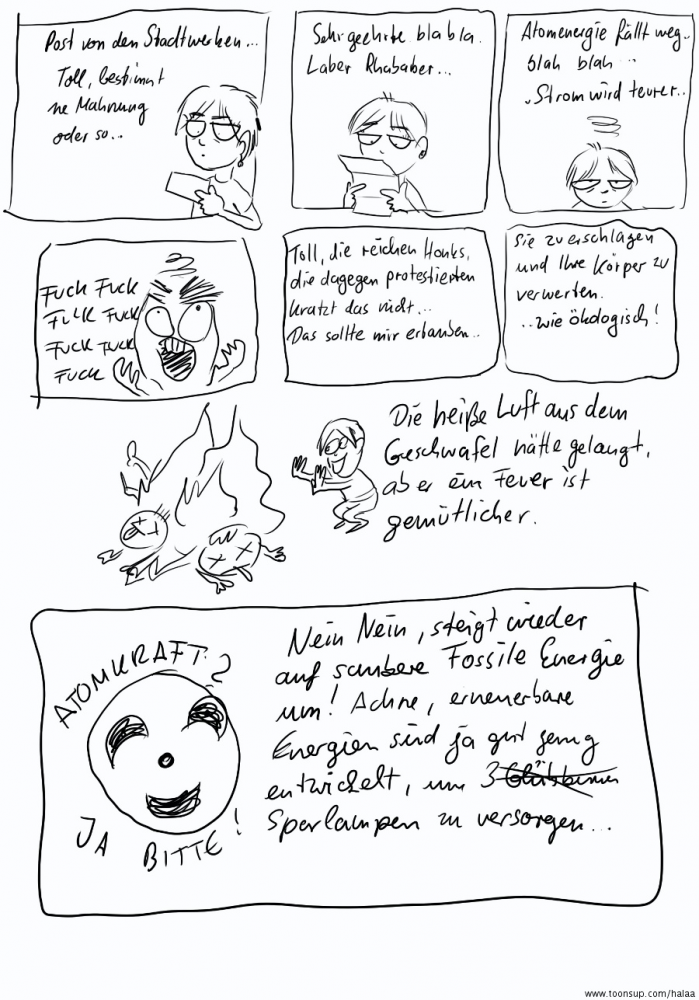 Post von den Stadtwerken...
Toll, bestimmt
ne Mahnung
oder so...
Sehr geehrte bla bla.
Laber Rhababer...
Atomenergie fällt weg..
blah blah...
Strom wird teurer..
FUCK FUCK
FUCK FUCK
FUCK FUCK
FUCK
Toll, die reichen Honks,
die dagegen protestierten
kratzt das nicht...
Das sollte mir erlauben..
Sie zu erschlagen
und Ihre Körper zu
verwerten.
..wie ökologisch!
Die heiße Luft aus dem
Geschwafel hätte gelangt,
aber ein Feuer ist
gemütlicher.
ATOMKRAFT?
JA BITTE!
Nein Nein, steigt wieder
auf saubere Fossile Energie
um! Achne, erneuerbare
Energien sind ja gut genug
entwickelt, um 3
Sparlampen zu versorgen...
www.toonsup.com/halaa